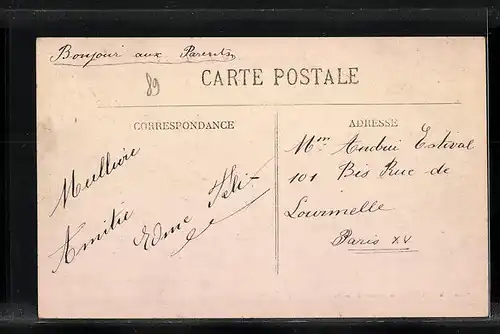 Bonjour aux Parents
89
CARTE POSTALE
CORRESPONDANCE
ADRESSE
Meilleure
Amitié
Edme Féli
Mm Andrée Estival
101 Bis Rue de
Lourmelle
Paris XV